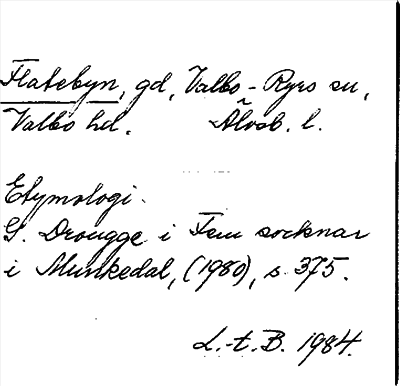 Flatebyn, gd, Valbo-Ryrs sn,
Valbo hd. Älvsb. l.
Etymologi.
G. Drougge i Fem socknar
i Munkedal, (1980), s. 375.
L.-t. B. 1984.